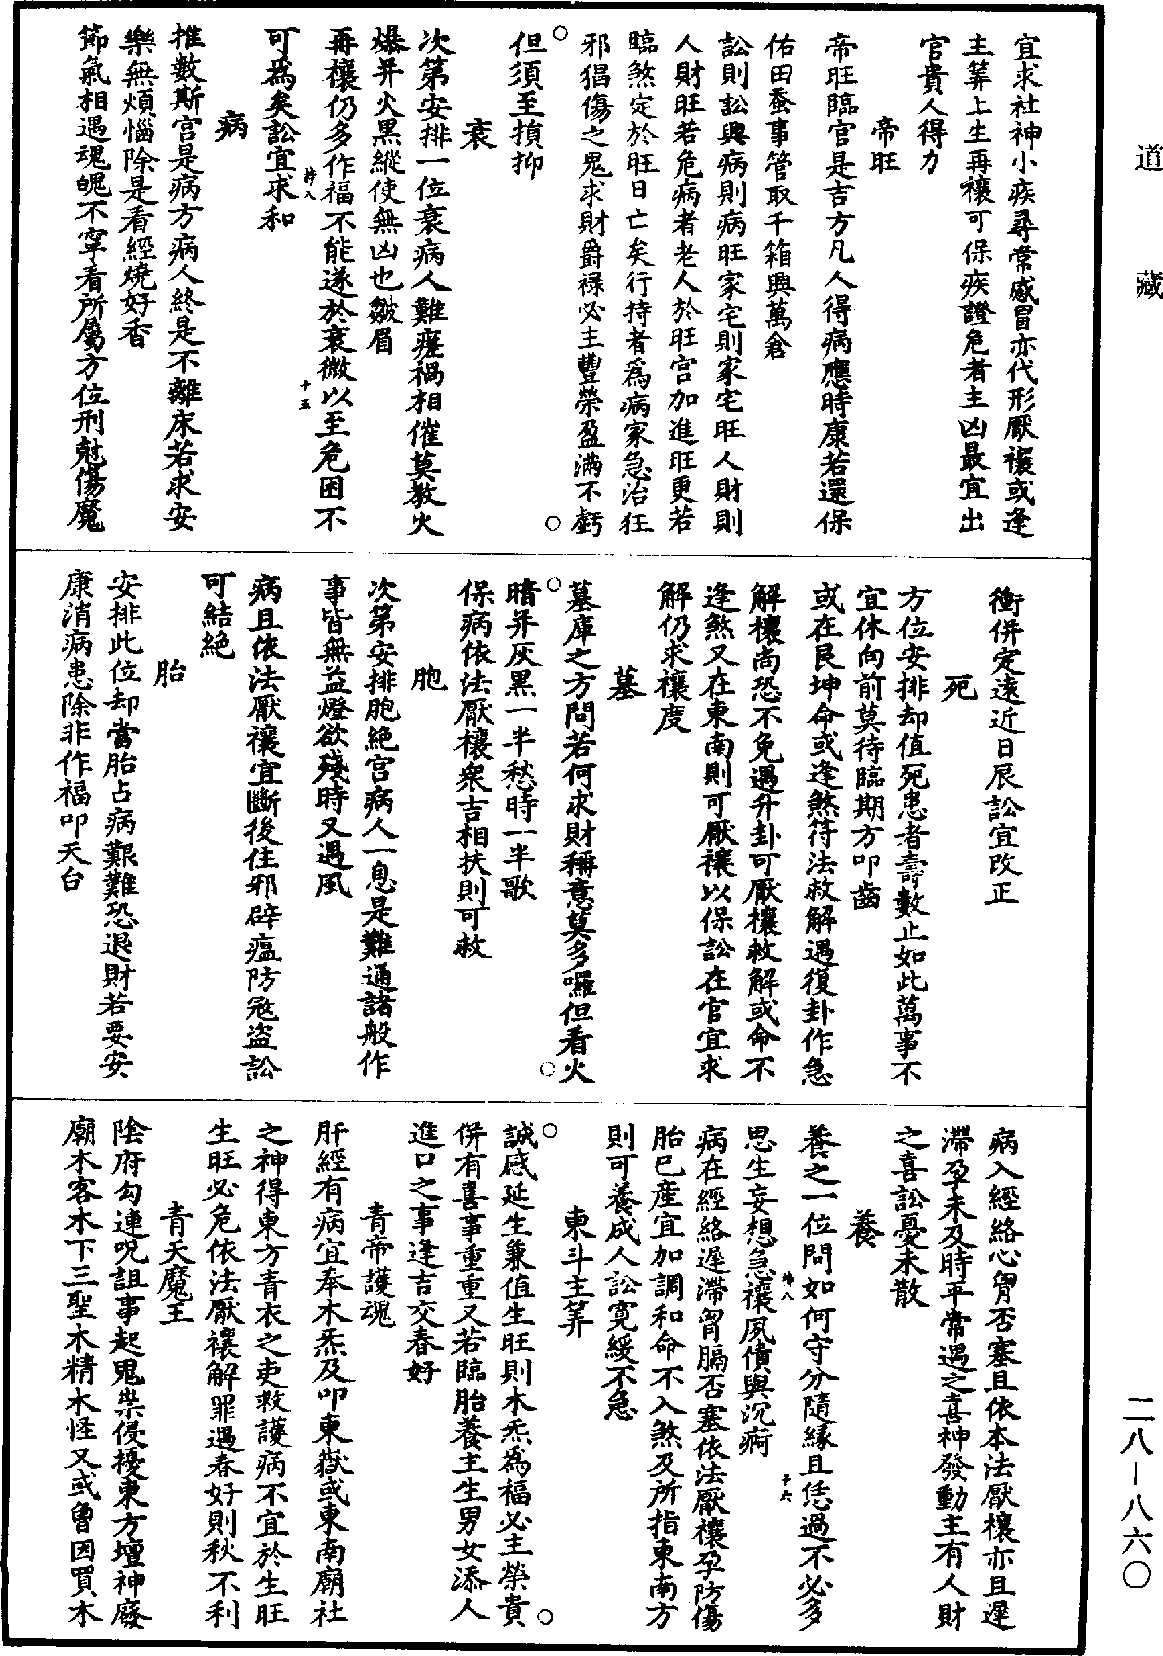 道藏
宜求社神小疾尋常感冒亦代形厭禳或逢
主筭上生再禳可保疾證危者主凶最宜出
官貴人得力
帝旺
帝旺臨官是吉方凡人得病應時康若還保
佑田蚕事管取千箱與萬倉
訟則訟興病則病旺家宅則家宅旺人財則
人財旺若危病者老人於旺宫加進旺更若
臨煞定於旺日亡矣行持者爲病家急治狂
邪猖傷之鬼求財爵祿必主豐榮盈滿不虧
但須至損抑
衰
次第安排一位衰病人難瘥禍相催莫教火
爆并火黑縱使無凶也皺眉
再禳仍多作福不能遂於衰微以至危困不
可爲矣訟宜求和
病
推數斯宫是病方病人終是不離床若求安
樂無煩惱除是看經燒好香
節氣相遇魂魄不寧看所屬方位刑尅傷魔
衝併定遠近日辰訟宜改正
死
方位安排却值死患者壽數止如此萬事不
宜休向前莫待臨期方叩齒
或在艮坤命或逢煞符法救解遇復卦作急
解禳尚恐不免遇升卦可厭禳救解或命不
逢煞又在東南則可厭禳以保訟在官宜求
解仍求禳度
墓
墓庫之方問若何求財稱意莫多囉但看火
暗并灰黑一半愁時一半歌
保病依法厭禳衆吉相扶則可救
胞
次第安排胞絶宫病人一息是難通諸般作
事皆無益燈欲殘時又遇風
病且依法厭禳宜斷後住邪辟瘟防寇盗訟
可結絶
胎
安排此位却當胎占病艱難恐退財若要安
康消病患除非作福叩天台
病入經絡心胷否塞且依本法厭禳亦且遲
滯孕未及時平常遇之喜神發動主有人財
之喜訟憂未散
養
養之一位問如何守分隨緣且恁過不必多
思生妄想急禳夙債與沉痾
病在經絡遲滯胷膈否塞依法厭禳孕防傷
胎已産宜加調和命不入煞及所指東南方
則可養成人訟寛緩不急
東斗主筭
誠感延生兼值生旺則木炁為福必主榮貴
併有喜事重重又若臨胎養主生男女添人
進口之事逢吉交春好
青帝護魂
肝經有病宜奉木炁及叩東嶽或東南廟社
之神得東方青衣之吏救護病不宜於生旺
生旺必危依法厭禳解罪遇春好則秋不利
青天魔王
陰府勾連呪詛事起鬼祟侵擾東方壇神廢
廟木客木下三聖木精木怪又或曾因買木
二八－八六〇